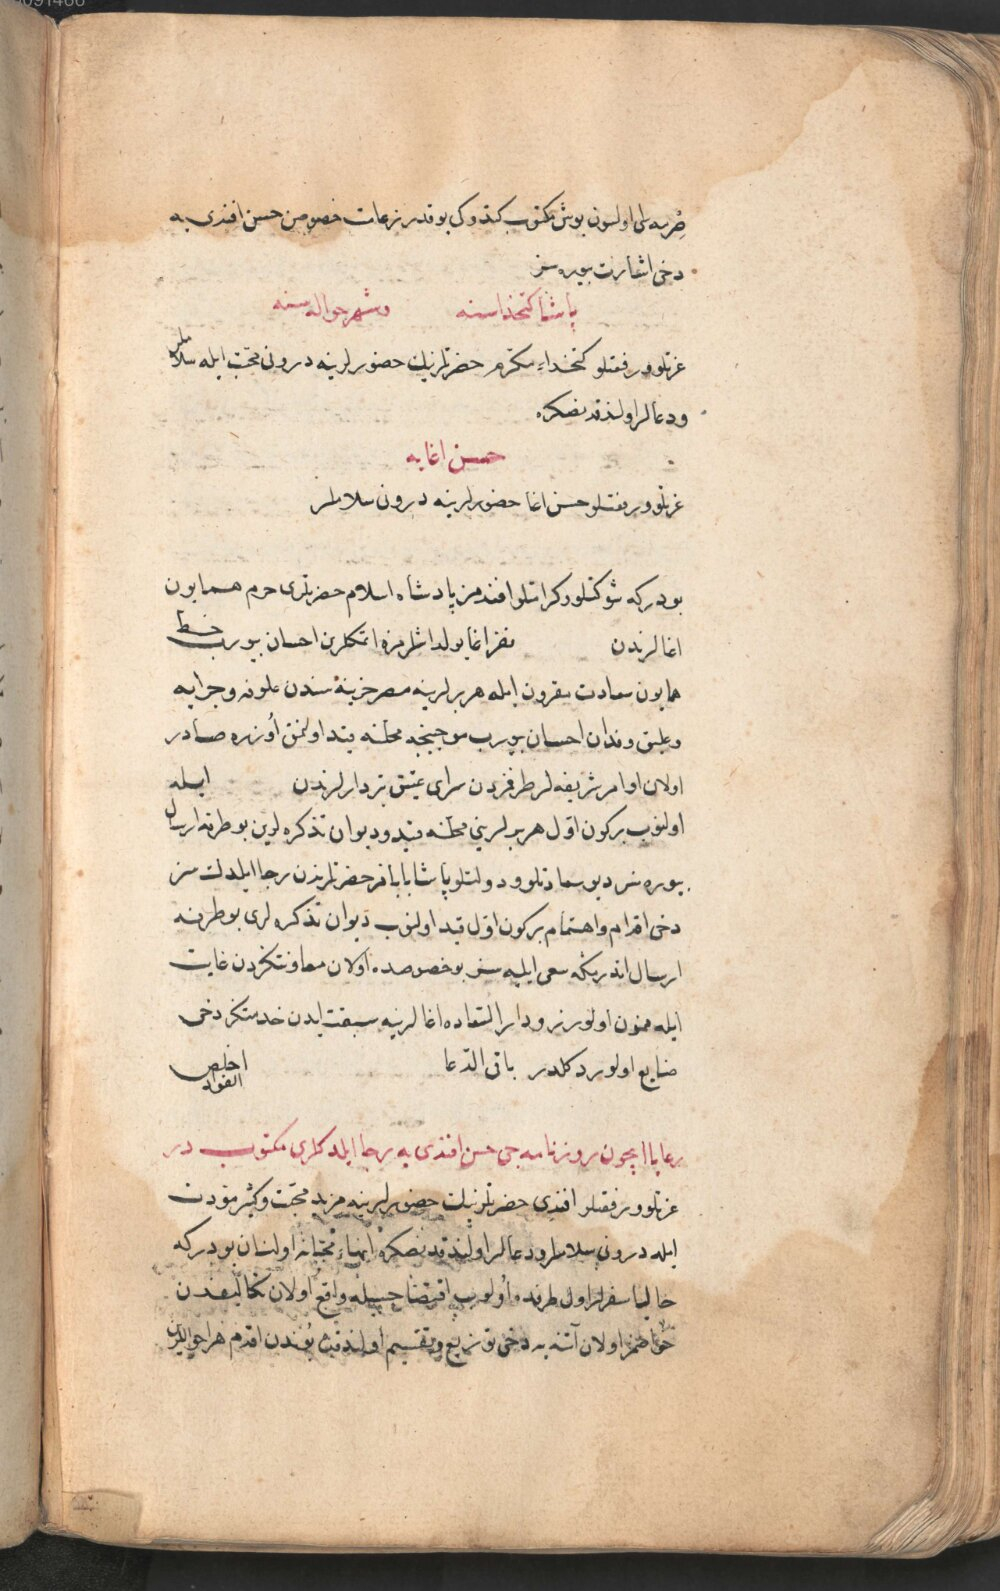 اولسون بوش مكتوب كتدوكى بو قدر نزعات خصوصن حسن افندى يه
دخى اشارت بيوره سز
پاشا كتخداسنه وشهر حواله سنه
عزتلو ورفعتلو كتخداء مكرم حضرتلرينك حضورلرينه درون محبت ايله سلاملر
ودعالر اولندقدنصكره
حسن اغايه
عزتلو ورفعتلو حسن اغا حضورلرينه درون سلاملر
بودركه شوكتلو وكرامتلو افندمز پادشاه اسلام حضرتلرى حرم همايون
اغالرندن نفر اغا يولداشلرمزه اتمكلرين احسان بيورب خط
همايون سعادت مقرون ايله هر برلرينه مصر خزينه سندن علوفه وجرايه
وعليق وفدان احسان بيورب موجبنجه محلنه قيد اولنمق اوزره صادر
اولان اوامر شريفه لر طرفمزدن سراى عتيق تبردارلرندن ايله
اولنوب بركون اول هر برلرينى محلنه قيد وديوان تذكره لرين بو طرفه ارسال
بيوره سز ديو سعادتلو ودولتلو پاشا بابامز حضرتلرندن رجا ايلدك سز
دخى اقدام واهتمام بركون اول قيد اولنوب ديوان تذكره لرى بو طرفه
ارسال اتدرمكه سعى ايليه سز بو خصوصده اولان معاونتكزدن غايت
ايله ممنون اولورز ودار السعاده اغالرينه سبقت ايدن خدمتكز دخى
ضايع اولور دكلدر باقى الدعا اخلص الفواد
رعايا ايچون روزنامه جى حسن افندى يه رجا ايلدكلرى مكتوب در
عزتلو ورفعتلو افندى حضرتلرينك حضورلرينه مزيد محبت وكثير مودت
ايله درون سلاملر ودعالر اولندقدنصكره انهاء محبانه اولنان بودركه
حاليا سفرلر اول طرفده اولوب اقتضا حسبيله واقع اولان تكاليفدن
خواصمز اولان آتنه يه دخى توزيع وتقسيم اولندقده بوندن اقدم هر